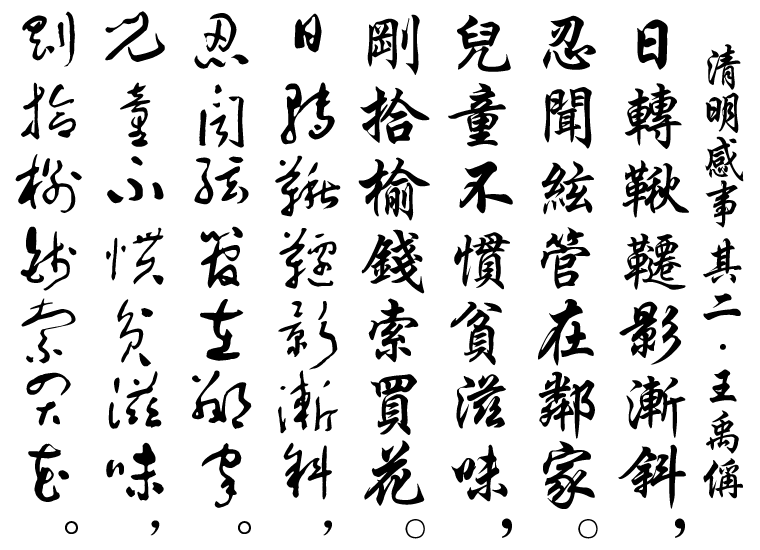 清明感事其二·王禹偁
日轉鞦韆影漸斜，
忍聞絃管在鄰家。
兒童不慣貧滋味，
剛拾榆錢索買花。
日轉鞦韆影漸斜，
忍聞絃管在鄰家。
兒童不慣貧滋味，
剛拾榆錢索買花。